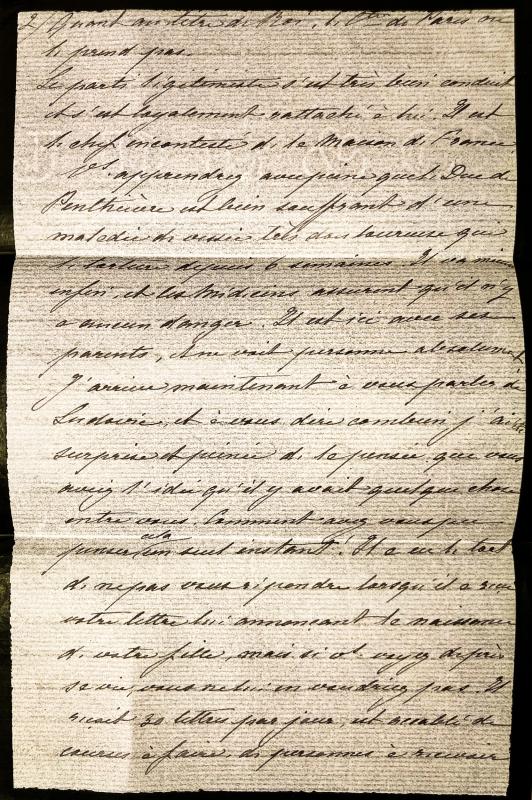 2/ Quant au titre de Roi, le Cte de Paris ne
le prend pas.
Le parti légitimiste s'est très bien conduit
et s'est loyalement rattaché à lui. Il est
le chef incontesté de la Maison de France
Vs apprendrez avec peine que le Duc de
Penthièvre est bien souffrant d'une
maladie de vessie très douloureuse qui
le torture depuis 6 semaines. Il va mieux
enfin, et les médecins assurent qu'il n'y
a aucun danger. Il est ici avec ses
parents, et ne voit personne absolument
J'arrive maintenant à vous parler de
et à vous dire combien j'ai été
surprise et peinée de la pensée que vous
aviez l'idée qu'il y avait quelque chose
entre vous. Comment avez vous pu
penser cela un seul instant! Il a eu le tort
de ne pas vous répondre lorsqu'il a reçu
votre lettre lui annonçant la naissance
de votre fille, mais si vs voyez de près
sa vie, vous ne lui en voudriez pas. Il
reçoit 30 lettres par jour, est accablé de
courses à faire, de personnes à recevoir